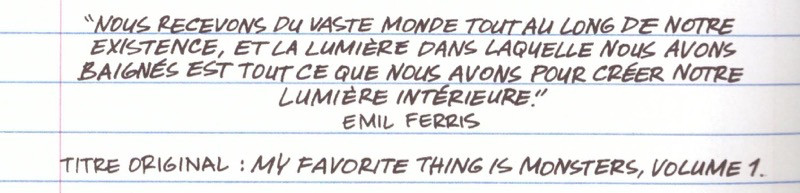 “NOUS RECEVONS DU VASTE MONDE TOUT AU LONG DE NOTRE
EXISTENCE, ET LA LUMIÈRE DANS LAQUELLE NOUS AVONS
BAIGNÉS EST TOUT CE QUE NOUS AVONS POUR CRÉER NOTRE
LUMIÈRE INTÉRIEURE.”
EMIL FERRIS
TITRE ORIGINAL : MY FAVORITE THING IS MONSTERS, VOLUME 1.